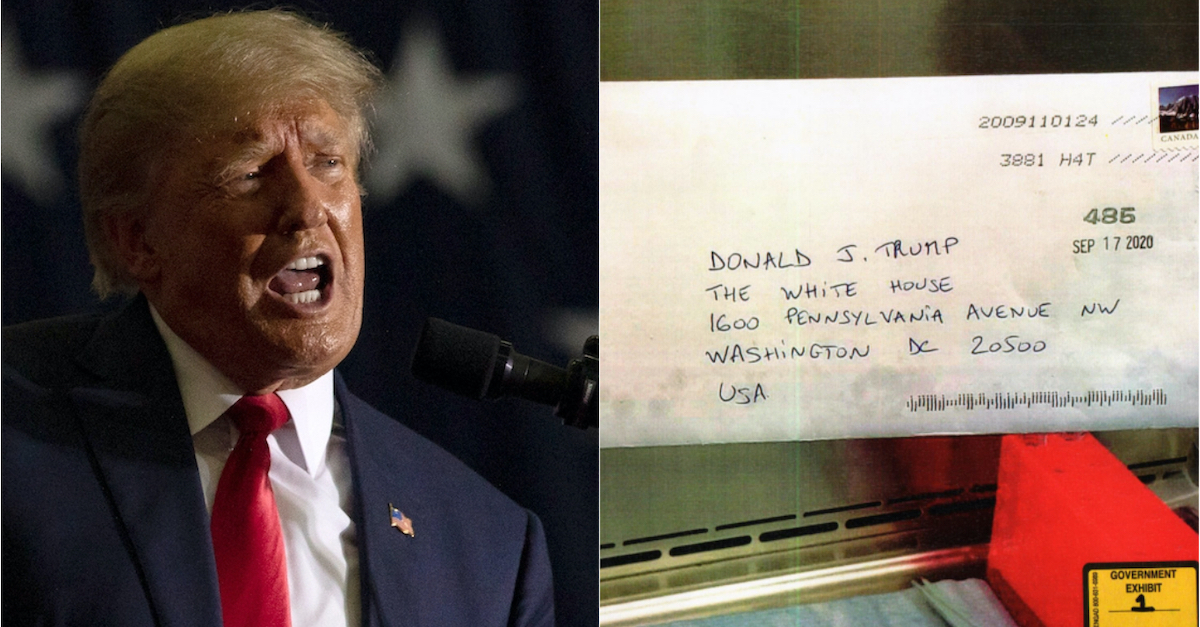 CANADA
2009110124
3881 H4T
485
SEP 17 2020
DONALD J. TRUMP
THE WHITE HOUSE
1600 PENNSYLVANIA AVENUE NW
WASHINGTON DC 20500
USA
GOVERNMENT
EXHIBIT
1